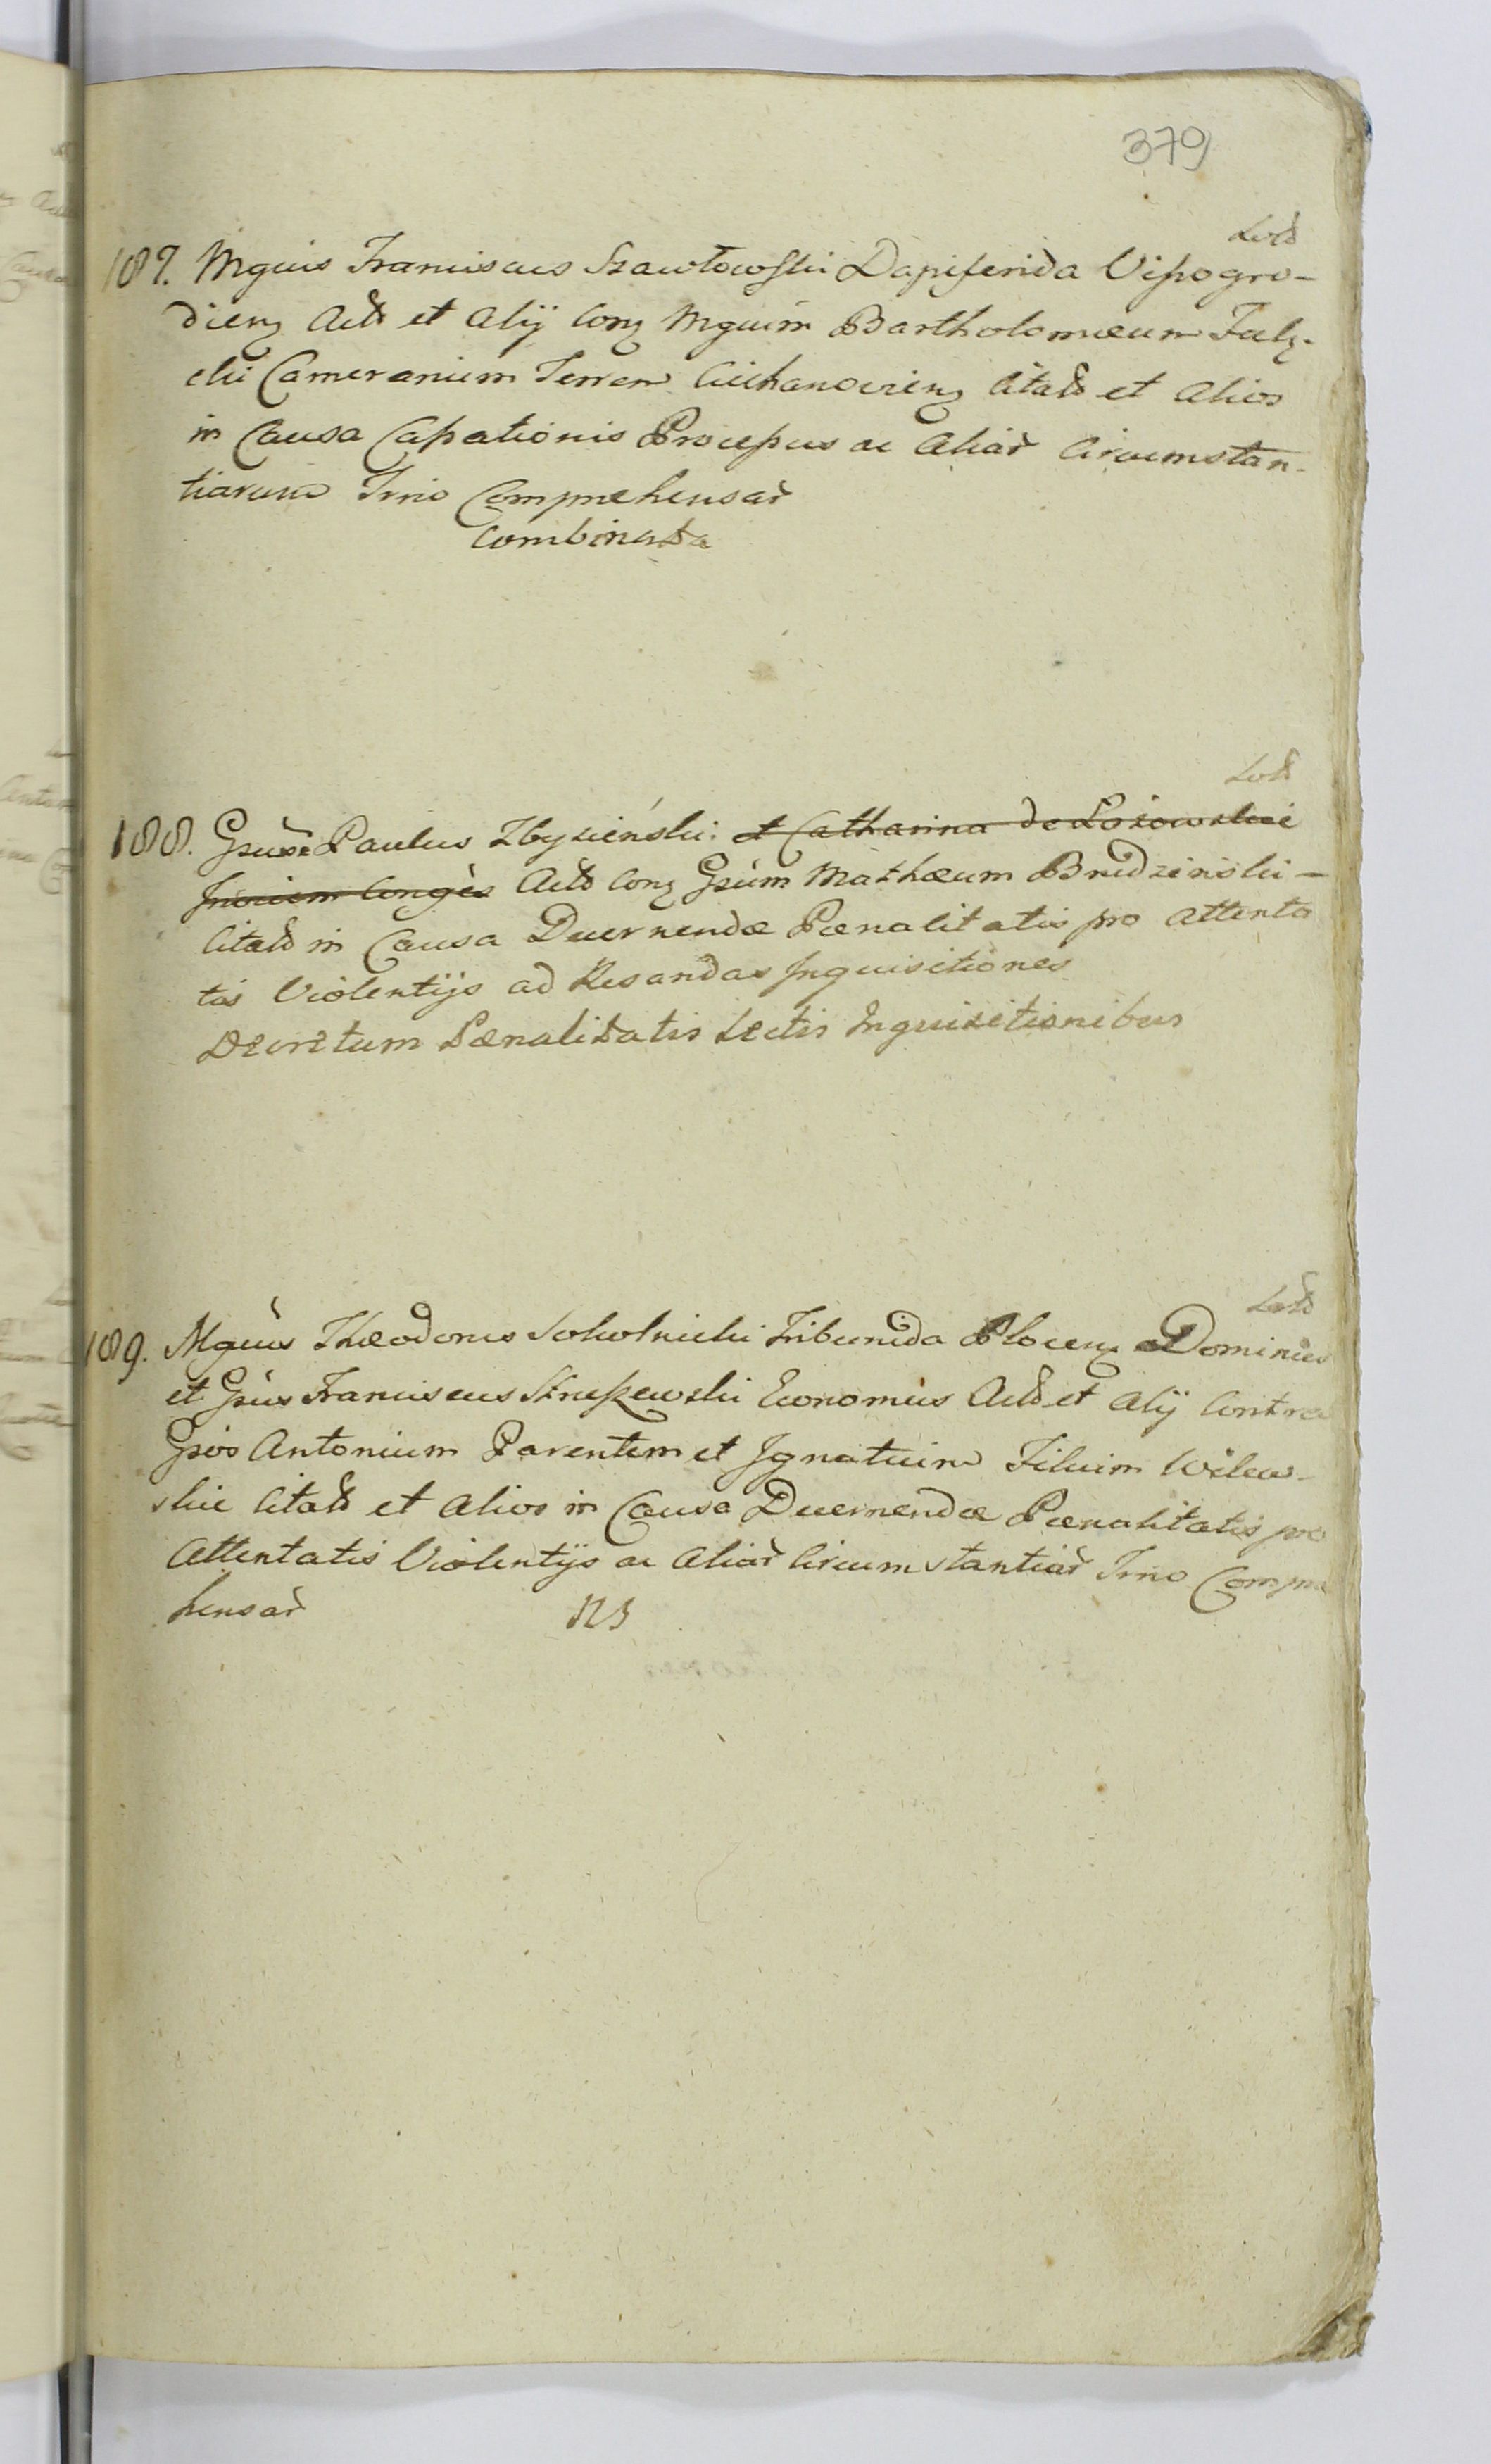 379
187. Mgnus Franciscus Szawłowski Dapiferida Vissogro-
dienz Actt et Alij Conz Mgnum Bartholomæum Fulz-
cki Camerarium Terren Ciechanovienz Citatt et Alios
in Causa Cassationis Processus ac Aliar̃ Circumstan-
tiarum Trno Compræhensar̃
Combinata
188. Paulus Zbyzieński: et Catharina de
Actt Conz Gsum Mathæum Brudzinski -
Citatt in Causa Decernendæ Pœnalitatis pro Attenta
tis Violentijs ad Inquisitiones
Decretum Pœnalitatis Lectis Inquisitionibus
189. Mgnus Theodorus Sokolnicki Tribunida Plocenz Dominus
et Gsus Franciscus Economus Actt et Alij Contra
Gsos Antonium Parentem et Ignatium Filium Wilew-
skie Citatt et Alios in Causa Decernendæ Pœnalitatis pro
Attentatis Violentijs ac Aliar̃ Circumstantiar̃ Trno Compræ
hensar̃